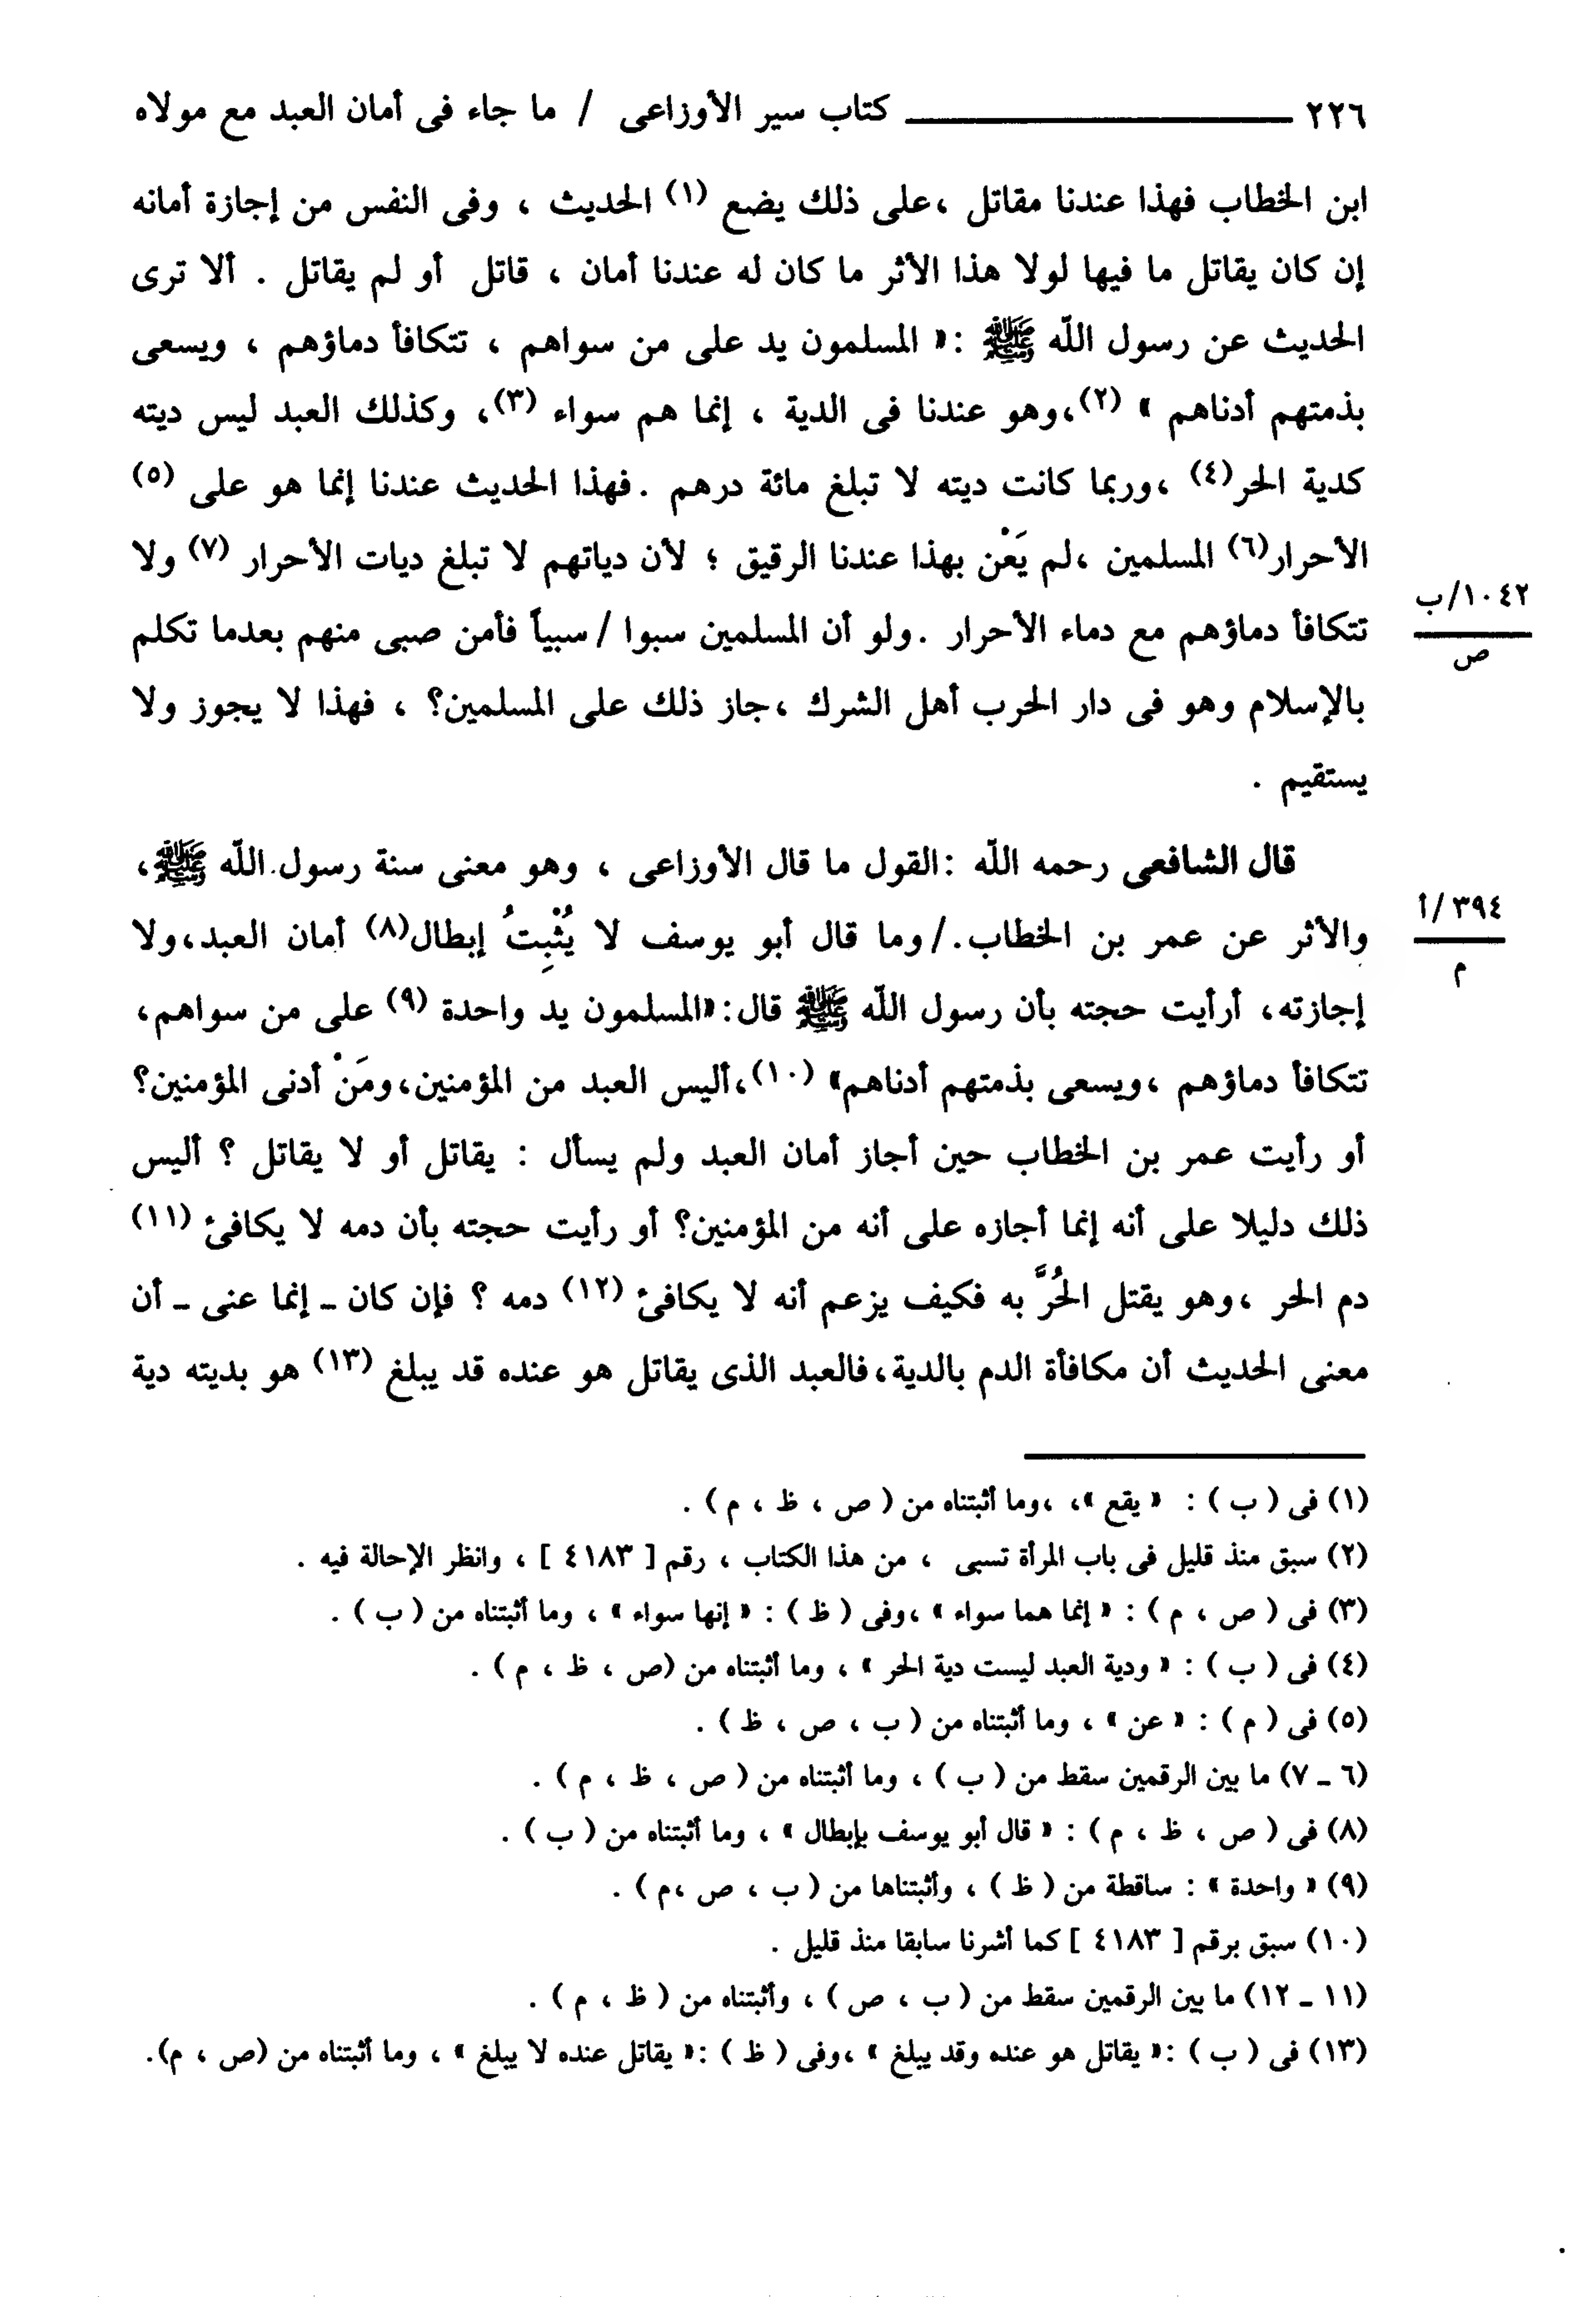 ٢٢٦ ـــــــــــــــــ كتاب سير الأوزاعى / ما جاء فى أمان العبد مع مولاه
ابن الخطاب فهذا عندنا مقاتل ،على ذلك يضع (١) الحديث ، وفى النفس من إجازة أمانه
إن كان يقاتل ما فيها لولا هذا الأثر ما كان له عندنا أمان ، قاتل أو لم يقاتل . ألا ترى
الحديث عن رسول اللّه ﷺ :« المسلمون يد على من سواهم ، تتكافأ دماؤهم ، ويسعى
بذمتهم أدناهم » (٢)،وهو عندنا فى الدية ، إنما هم سواء (٣)، وكذلك العبد ليس ديته
كدية الحر(٤) ،وربما كانت ديته لا تبلغ مائة درهم .فهذا الحديث عندنا إنما هو على (٥)
الأحرار(٦) المسلمين ،لم يَعْن بهذا عندنا الرقيق ؛ لأن دياتهم لا تبلغ ديات الأحرار (٧) ولا
١٠٤٢/ب
ص
تتكافأ دماؤهم مع دماء الأحرار .ولو أن المسلمين سبوا / سبياً فأمن صبى منهم بعدما تكلم
بالإسلام وهو فى دار الحرب أهل الشرك ،جاز ذلك على المسلمين؟ ، فهذا لا يجوز ولا
يستقيم .
قال الشافعى رحمه اللّه :القول ما قال الأوزاعى ، وهو معنى سنة رسول اللّه ﷺ،
٣٩٤/أ
م
والأثر عن عمر بن الخطاب./ وما قال أبو يوسف لا يُثْبِتُ إبطال(٨) أمان العبد،ولا
إجازته، أرأيت حجته بأن رسول اللّه ﷺ قال:«المسلمون يد واحدة (٩) على من سواهم،
تتكافأ دماؤهم ،ويسعى بذمتهم أدناهم» (١٠)،أليس العبد من المؤمنين،ومَنْ أدنى المؤمنين؟
أو رأيت عمر بن الخطاب حين أجاز أمان العبد ولم يسأل : يقاتل أو لا يقاتل ؟ أليس
ذلك دليلا على أنه إنما أجازه على أنه من المؤمنين؟ أو رأيت حجته بأن دمه لا يكافئ (١١)
دم الحر ،وهو يقتل الحُرَّ به فكيف يزعم أنه لا يكافئ (١٢) دمه ؟ فإن كان ـ إنما عنى ـ أن
معنى الحديث أن مكافأة الدم بالدية،فالعبد الذى يقاتل هو عنده قد يبلغ (١٣) هو بديته دية
(١) فى ( ب ) : « يقع »، ،وما أثبتناه من ( ص ، ظ ، م ) .
(٢) سبق منذ قليل فى باب المرأة تسبى ، من هذا الكتاب ، رقم [ ٤١٨٣ ] ، وانظر الإحالة فيه .
(٣) فى ( ص ، م ) : « إنما هما سواء » ،وفى ( ظ ) : « إنها سواء » ، وما أثبتناه من ( ب ) .
(٤) فى ( ب ) : « ودية العبد ليست دية الحر » ، وما أثبتناه من (ص ، ظ ، م ) .
(٥) فى ( م ) : « عن » ، وما أثبتناه من ( ب ، ص ، ظ ) .
(٦ ـ ٧) ما بين الرقمين سقط من ( ب ) ، وما أثبتناه من ( ص ، ظ ، م ) .
(٨) فى ( ص ، ظ ، م ) : « قال أبو يوسف بإبطال » ، وما أثبتناه من ( ب ) .
(٩) « واحدة » : ساقطة من ( ظ ) ، وأثبتناها من ( ب ، ص ،م ) .
(١٠) سبق برقم [ ٤١٨٣ ] كما أشرنا سابقا منذ قليل .
(١١ ـ ١٢) ما بين الرقمين سقط من ( ب ، ص ) ، وأثبتناه من ( ظ ، م ) .
(١٣) فى ( ب ) :« يقاتل هو عنده وقد يبلغ » ،وفى ( ظ ) :« يقاتل عنده لا يبلغ » ، وما أثبتناه من (ص ، م).